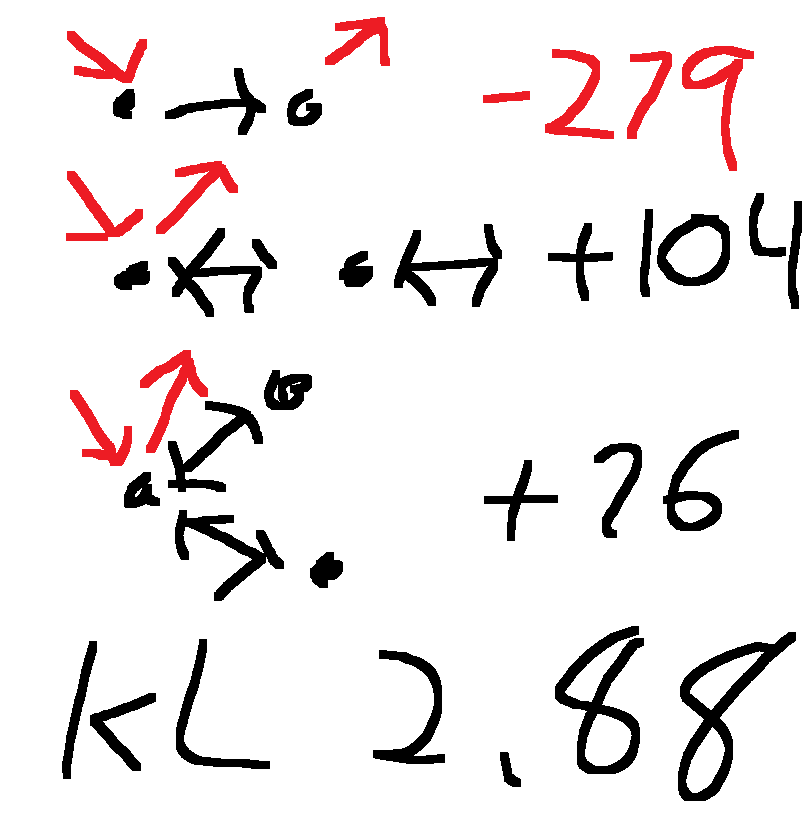 -279
+104
+76
KL 2.88